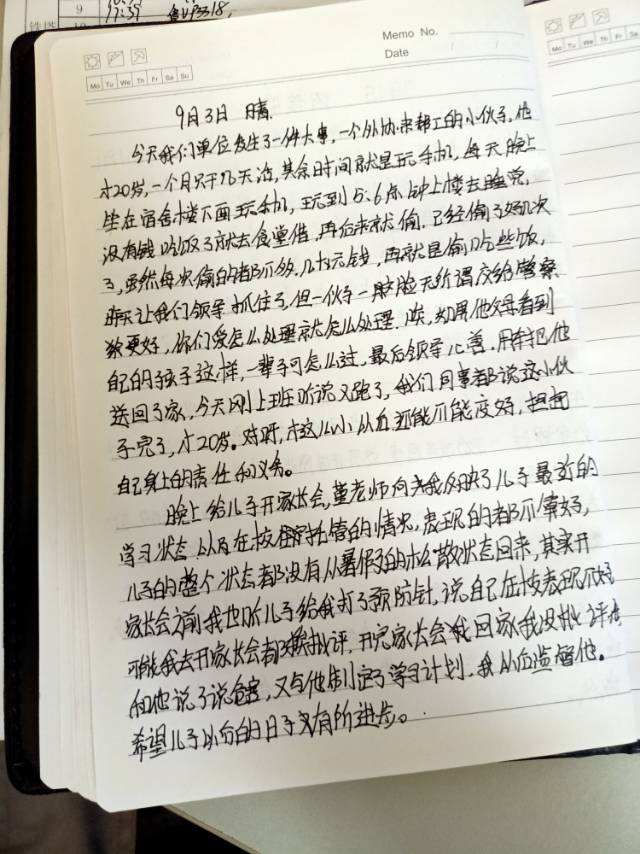 9
17:37
Memo No.
Date / /
Mo Tu We Th Fr Sa Su
Mo Tu We Th Fr
9月3日 晴.
今天我们单位发生了一件大事,一个外协来帮工的小伙子,他
才20岁,一个月只干几天活,其余时间就是玩手机,每天晚上
坐在宿舍楼下面玩手机,玩到5.6点钟上楼去睡觉,
没有钱吃饭了就去食堂借,再后来就偷.已经偷了好几次
了,虽然每次偷的都不多,几十元钱,再就是偷吃些饭,
昨天让我们领导抓住了,但小伙子一脸无所谓交给警察
就更好,你们爱怎么处理就怎么处理.唉,如果他父母看到
自己的孩子这样,一辈子可怎么过,最后领导心善.用车把他
送回了家,今天刚上班听说又跑了,我们同事都说这小伙
子完了,才20岁.对呀,才这么小从后还能不能变好,担起
自己身上的责任和义务。
晚上给儿子开家长会,董老师向我反映了儿子最近的
学习状态以及在校托管的情况,表现的都不算好,
儿子的整个状态都没有从暑假的松散状态回来,其实开
家长会之前我也听儿子给我打了预防针,说自己在校表现不好
可能我去开家长会都挨批评,开完家长会我回家我没批评他
和他说了说危害,又与他制定了学习计划.我从后监督他。
希望儿子以后的日子义有所进步。